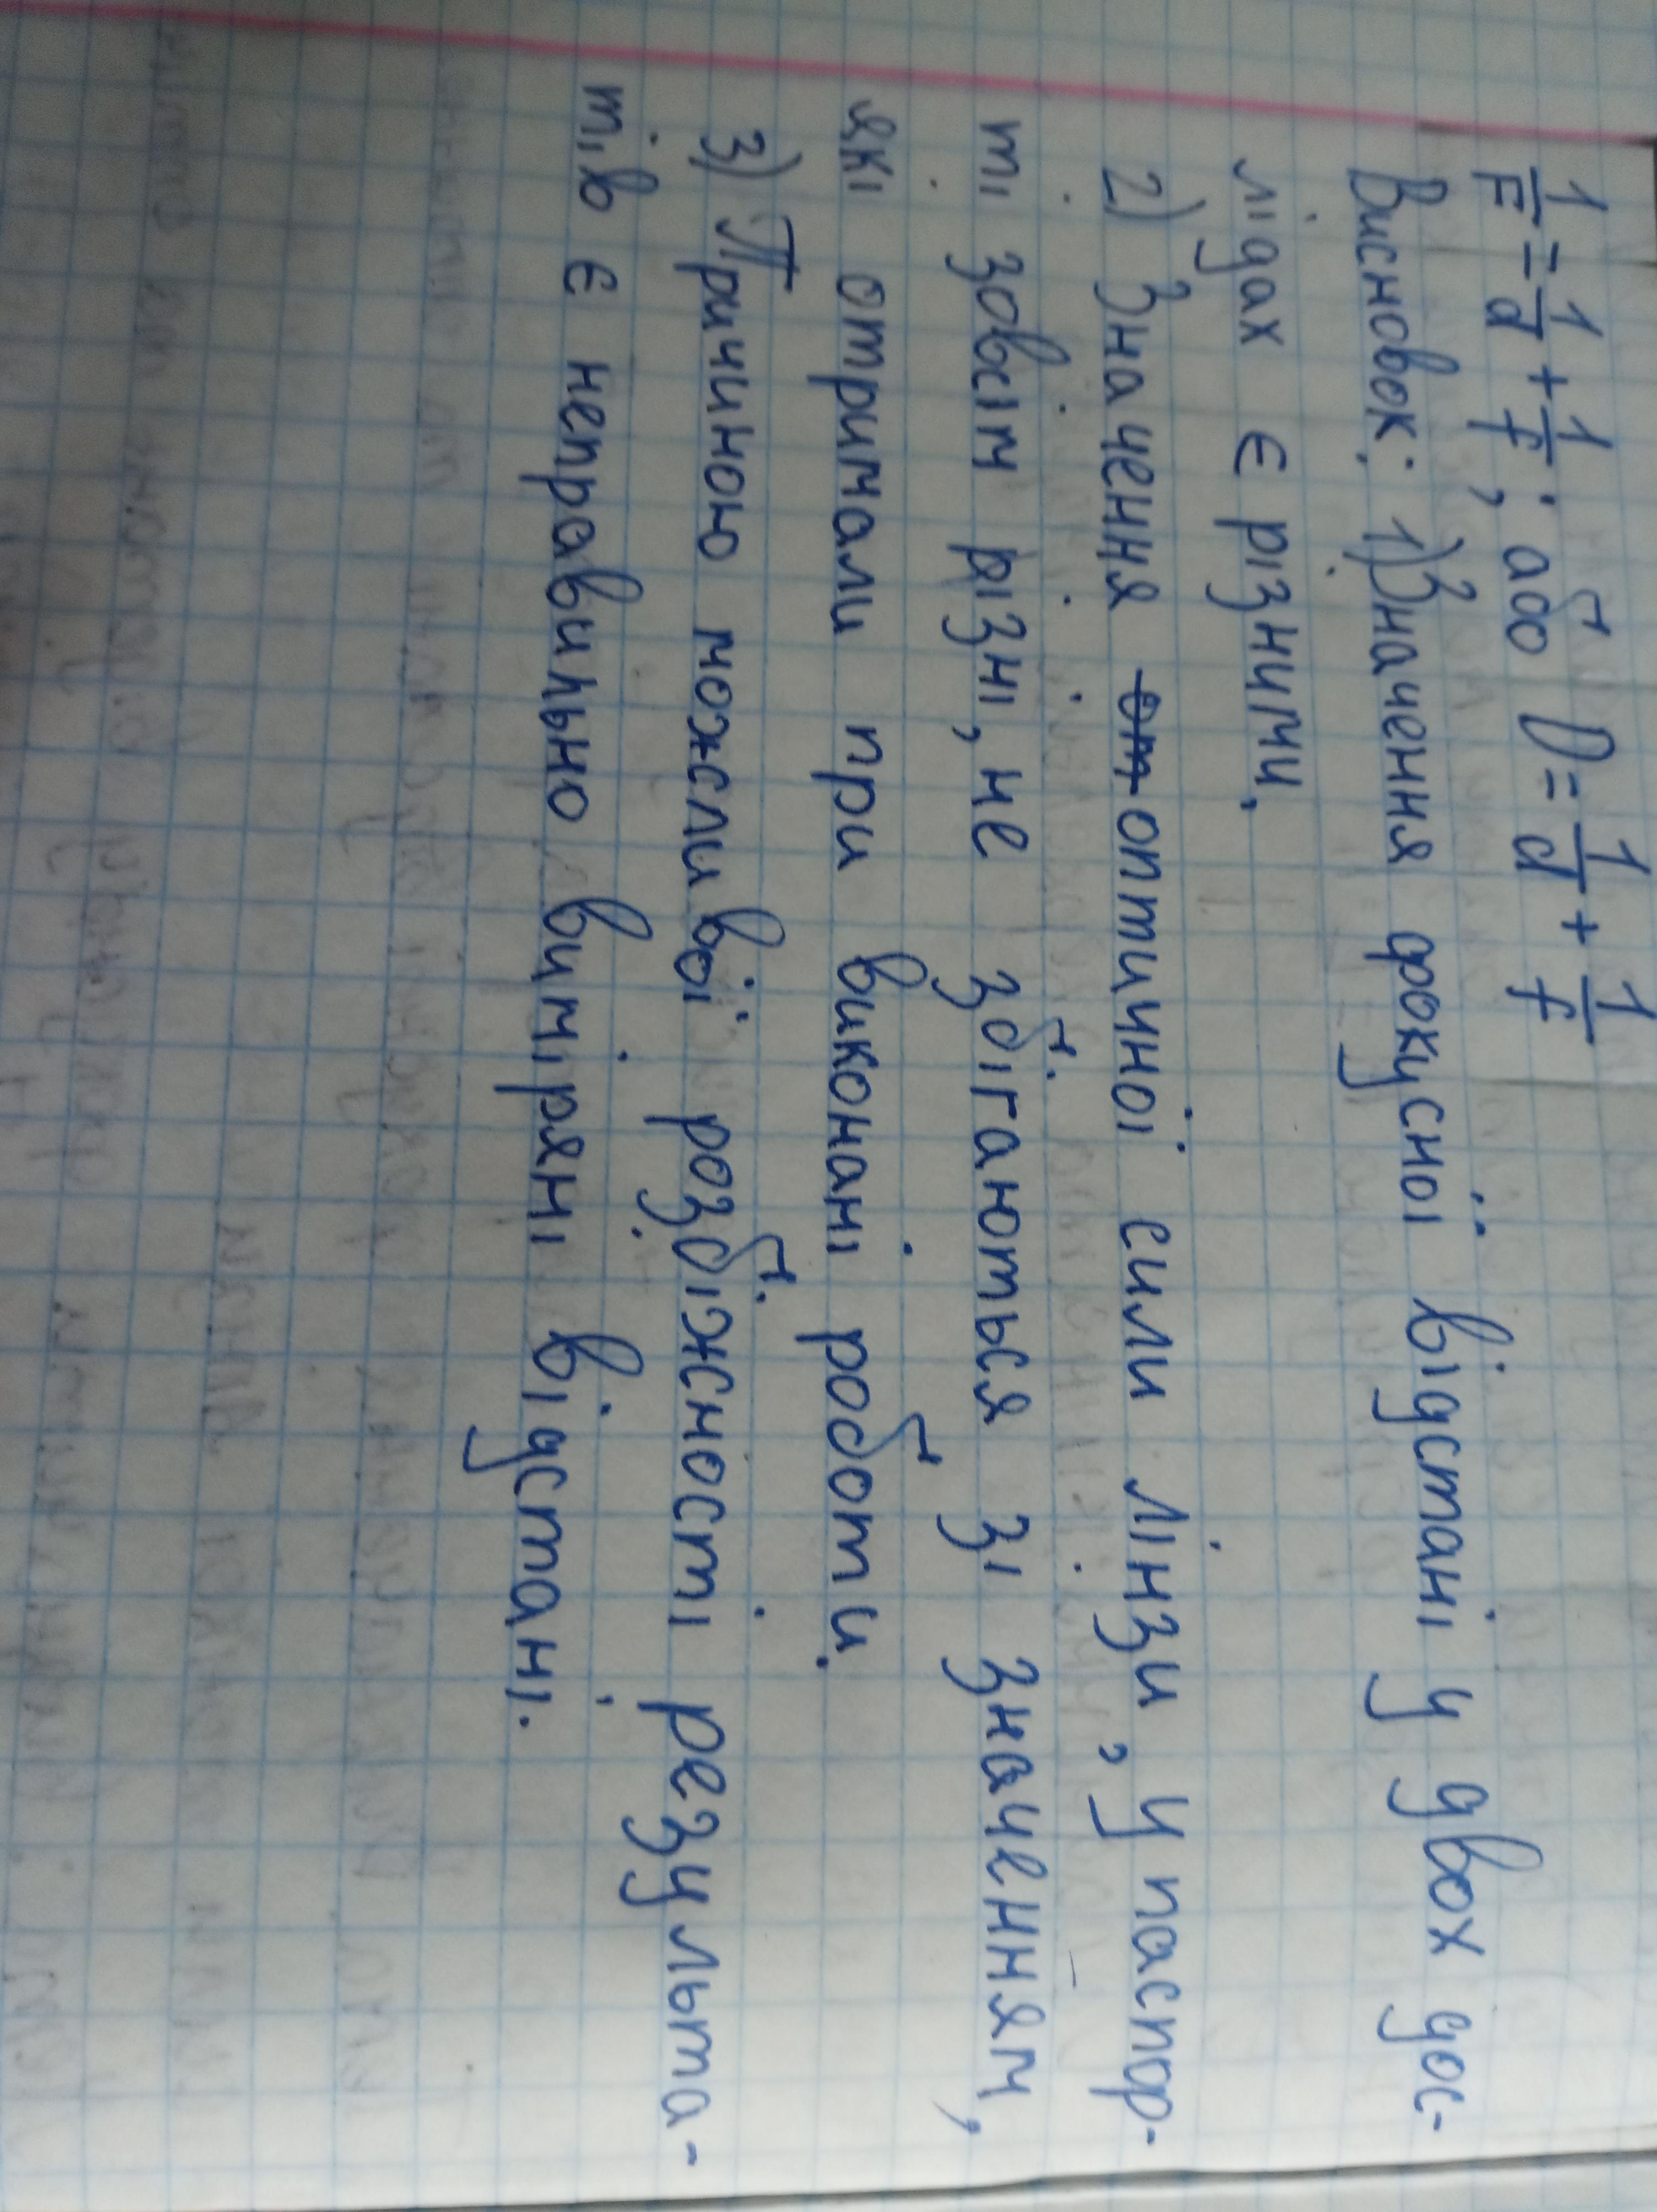 1/F = 1/d + 1/f; або D = 1/d + 1/f
Висновок: 1) Значення фокусної відстані у двох дос-
лідах є різними.
2) Значення от оптичної сили лінзи, у паспор-
ті зовсім різні, не збігаються зі значенням,
які отримали при виконані роботи.
3) Причиною можливої розбіжності результа-
тів є неправильно виміряні відстані.